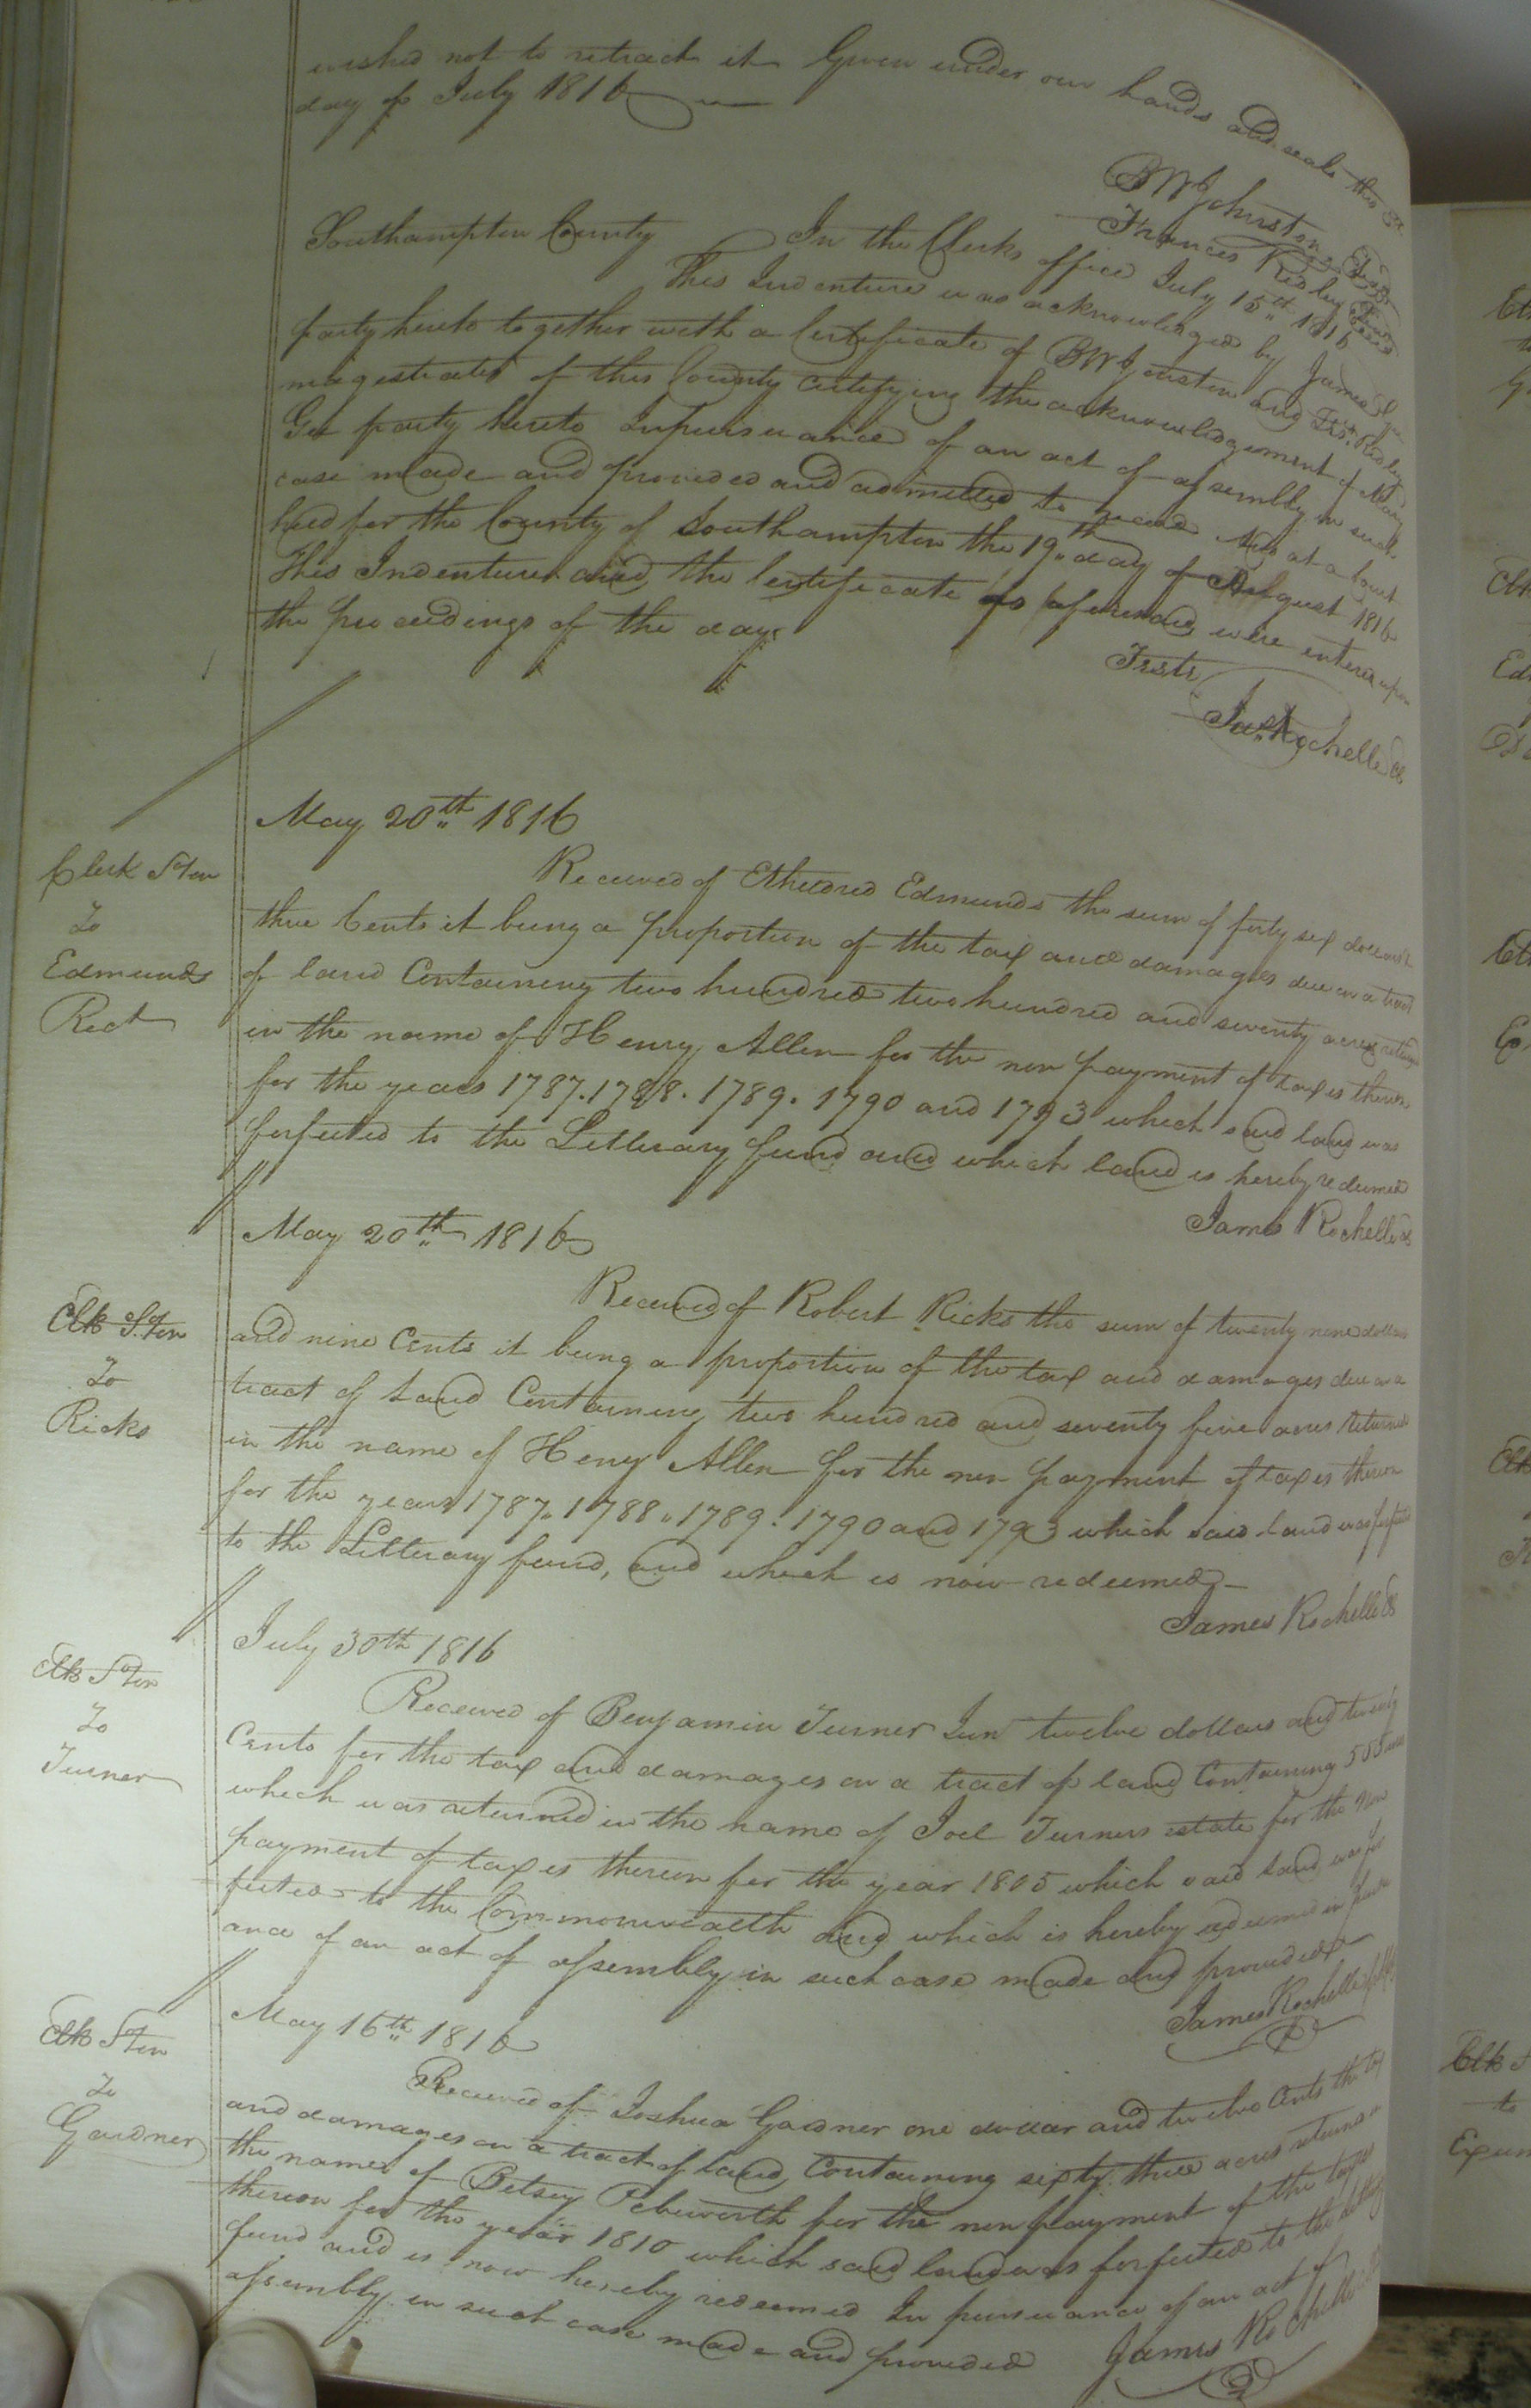 wishd not to retract it Given under our hands and seals this
day of July 1816
BW Johnston Seal
Frances Ridley Seal
Southampton County In the Clerks office July 15th 1816
This Indenture was acknowledged by James
party hereto together with a Certificate of BW Jonston and Frs. Ridley
magestrates of this County certifying the acknowledgement of Mary
Gee party hereto Inpursuance of an act of assembly in such
case made and provided and admitted to record And at a Court
held for the County of Southampton the 19th day of August 1816
This Indenture and the Certificate as aforesaid were entered upon
the proceedings of the day
Teste
Jas. Rochelle
May 20th 1816
Clerk Soton
To
Edmunds
Rect
Received of Etheldred Edmunds the sum of forty six dollars &
three Cents it being a proportion of the tax and damages due on a tract
of land Containeng two hundred two hundred and seventy acres returned
in the name of Henry Allen for the non payment of taxes thereon
for the years 1787. 1788. 1789. 1790 and 1793 which said land was
forfeited to the Litterary fund and which land is hereby redeemed
James Rochelle
May 20th 1816
Clk Soton
To
Ricks
Received of Robert Ricks the sum of twenty nine dollars
and nine Cents it being a proportion of the tax and damages due on a
tract of Land Containeng two hundred and seventy five acres returned
in the name of Heny Allen for the non payment of taxes thereon
for the years 1787. 1788. 1789. 1790 and 1793 which said land was forfeited
to the Litterary fund, and which is now redeemed
James Rochelle
July 30th 1816
Clk Soton
To
Turner
Received of Benjamin Turner Jun twelve dollars and twenty
Cents for the tax and damages on a tract of land Containing 555 acres
which was returned in the name of Joel Turners estate for the non
payment of taxes thereon for the year 1805 which said land was for
feited to the Commonwealth and which is hereby redeemed in pursu
ance of an act of assembly in such case made and provided
James Rochelle
May 16th 1816
Clk Soton
To
Gardner
Received of Joshua Gardner one dollar and twelve Cents the tax
and damages on a tract of land, Containing sixty three acres returned in
the name of Betsey Pebworth for the non payment of the taxes
thereon for the year 1810 which said land was forfeited to the
fund and is now hereby redeemed In pursuance of an act of
assembly in such case made and provided James Rochelle